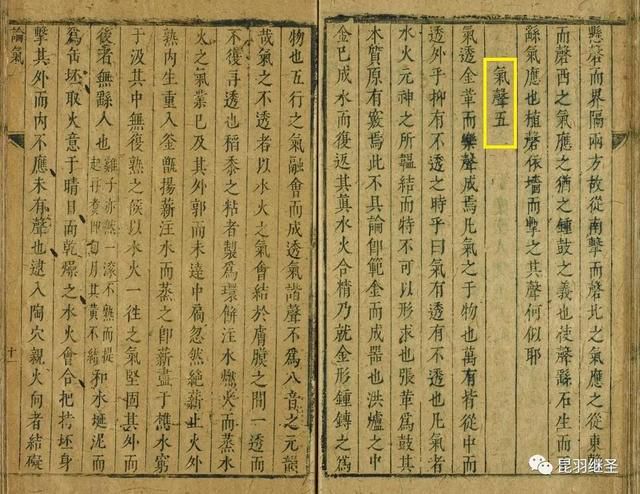 懸磬而界隔兩方故從南擊而磬北之氣應之從東擊
而磬西之氣應之猶之鍾鼓之義也使聲繇石生而
繇氣應也植磬依墻而擊之其聲何似耶
氣聲五
氣透金革而樂聲成焉凡氣之于物也萬有皆從中而
透外乎抑有不透之時乎曰氣有透也有不透也凡氣者
水火元神之所韞結而特不可以形求也張革爲鼓
本質原有竅焉此不具論卽範金而成器也洪爐之中
金已成水而復返其真水火合精乃就金形鍾鎛之爲
物也五行之氣融會而成透氣諧聲不爲八音之元韻
哉氣之不透者以水火之氣會結於膚膜之間一透而
不復再透也稻黍之粘者製爲環餅汪水燃火而蒸水
火之氣業已及其外郭而未達中扃忽然絶薪止火外
熟內生重入釜甑揚薪汪水而蒸之卽薪盡于樵水窮
于汲其中無復熟之候以水火一往之氣堅固其外而
後者無繇入也雞子亦然一滾不熟而提起再煮卽旬月其黃不結和水埏泥而
爲缶坯取火意于晴日而乾燥之水火會合把持坯身
擊其外而內不應未有聲也逮入陶穴親火向者結凝
論氣
十一
昆羽继圣